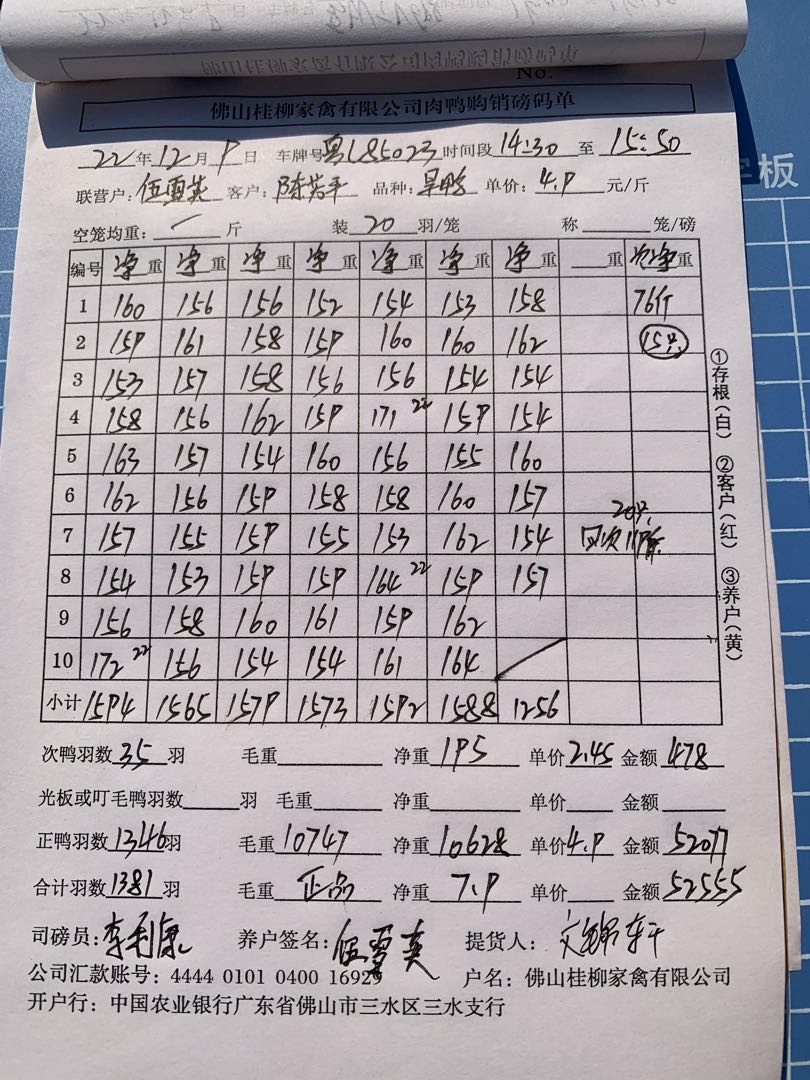 No.
佛山桂柳家禽有限公司肉鸭购销磅码单
22年12月9日 车牌号粤L85023时间段14:30至15:50
联营户:伍雪英 客户:陈若平 品种:旱鸭 单价:4.9元/斤
空笼均重:斤 装20羽/笼 称笼/磅
编号 净重 净重 净重 净重 净重 净重 净重 重 次净重
1 160 156 156 152 154 153 158 76斤
2 159 161 158 159 160 160 162 15只
3 153 157 158 156 156 154 154
4 158 156 162 159 171 22 159 154
5 163 157 154 160 156 155 160
6 162 156 159 158 158 160 157 20只
7 157 155 159 155 153 162 154 119斤
8 154 153 159 159 164 22 159 157
9 156 158 160 161 159 162
10 172 22 156 154 154 161 164
小计 1594 1565 1579 1573 1592 1588 1256
①存根(白) ②客户(红) ③养户(黄)
次鸭羽数35羽 毛重 净重195 单价2.45 金额478
光板或叮毛鸭羽数羽 毛重 净重 单价 金额
正鸭羽数1346羽 毛重10747 净重10628 单价4.9 金额52077
合计羽数1381羽 毛重正品 净重7.9 单价 金额52555
司磅员:李利康 养户签名:伍雪英 提货人:
公司汇款账号:4444 0101 0400 16929 户名:佛山桂柳家禽有限公司
开户行:中国农业银行广东省佛山市三水区三水支行